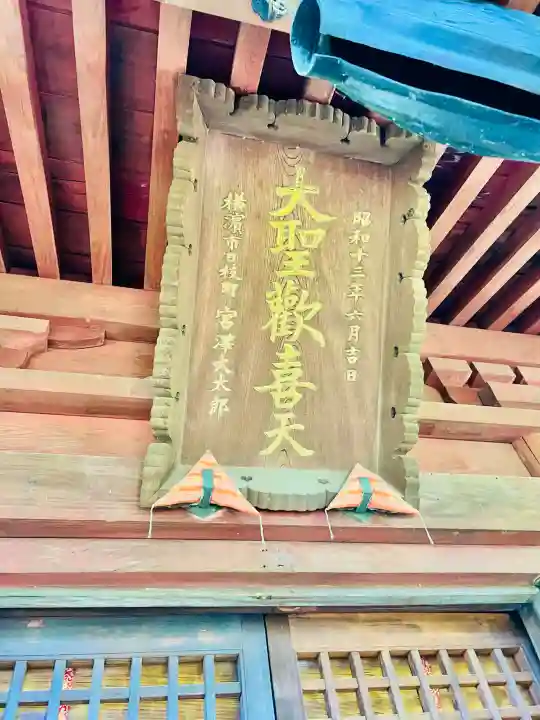 昭和十三年六月吉日
大聖歡喜天
橫濱市日枝町 宮澤大太郎